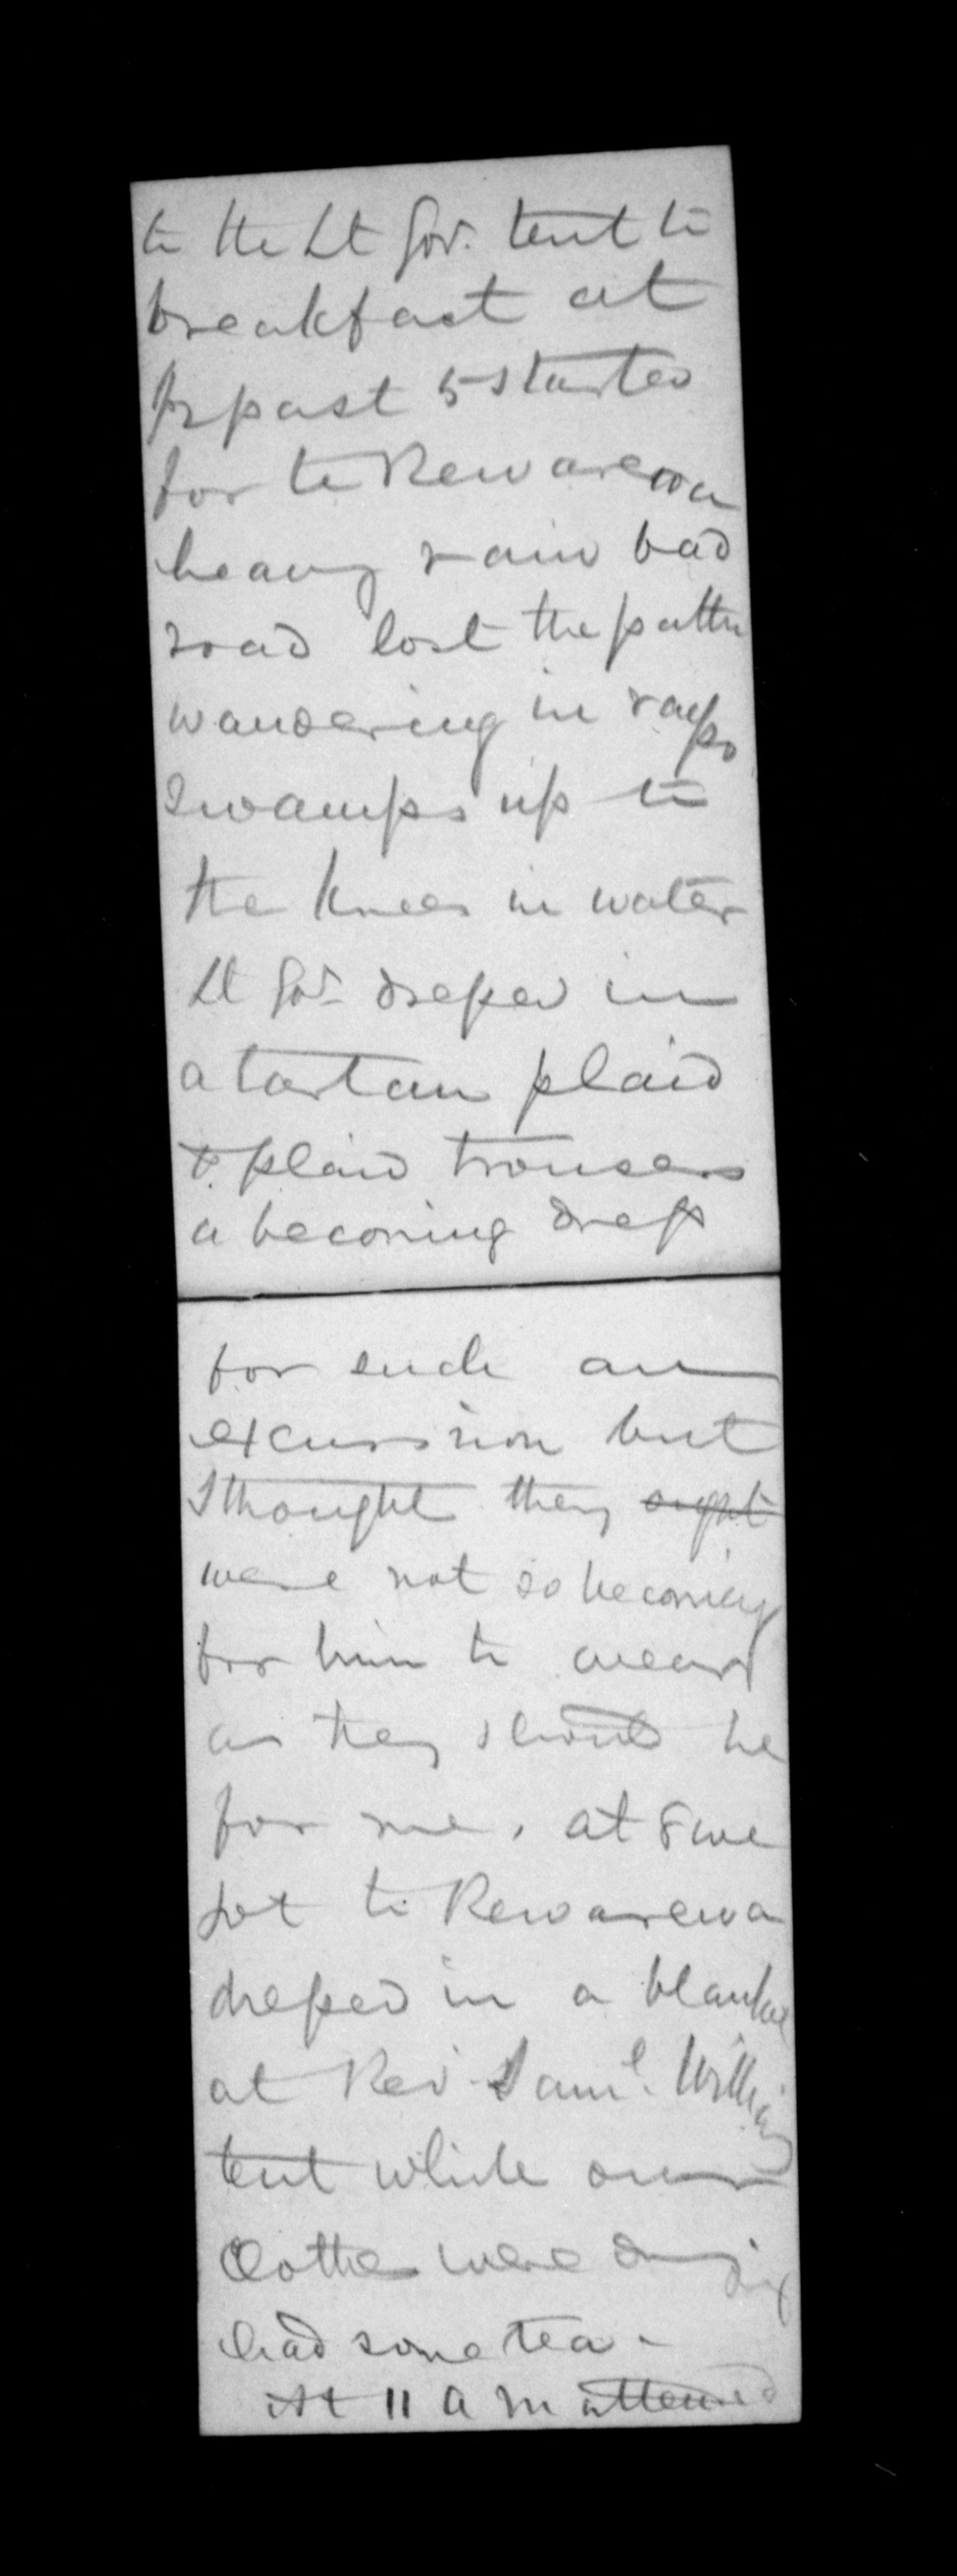 to the Lt Gov. tent to
breakfast at
½ past 5 started
for te Rewarewa
heavy rain bad
road lost the path
wandering in raupo
swamps up to
the knees in water
Lt Gov. dressed in
a tartan plaid
& plaid trousers
a becoming dress
for such an
excursion but
I thought they ought
were not so becoming
for him to wear
as they should be
for me, at 8 we
got to Rewarewa
dressed in a blanket
at Rev. Saml. Williams
tent while our
Clothes were drying
had some tea -
At 11 a m attended